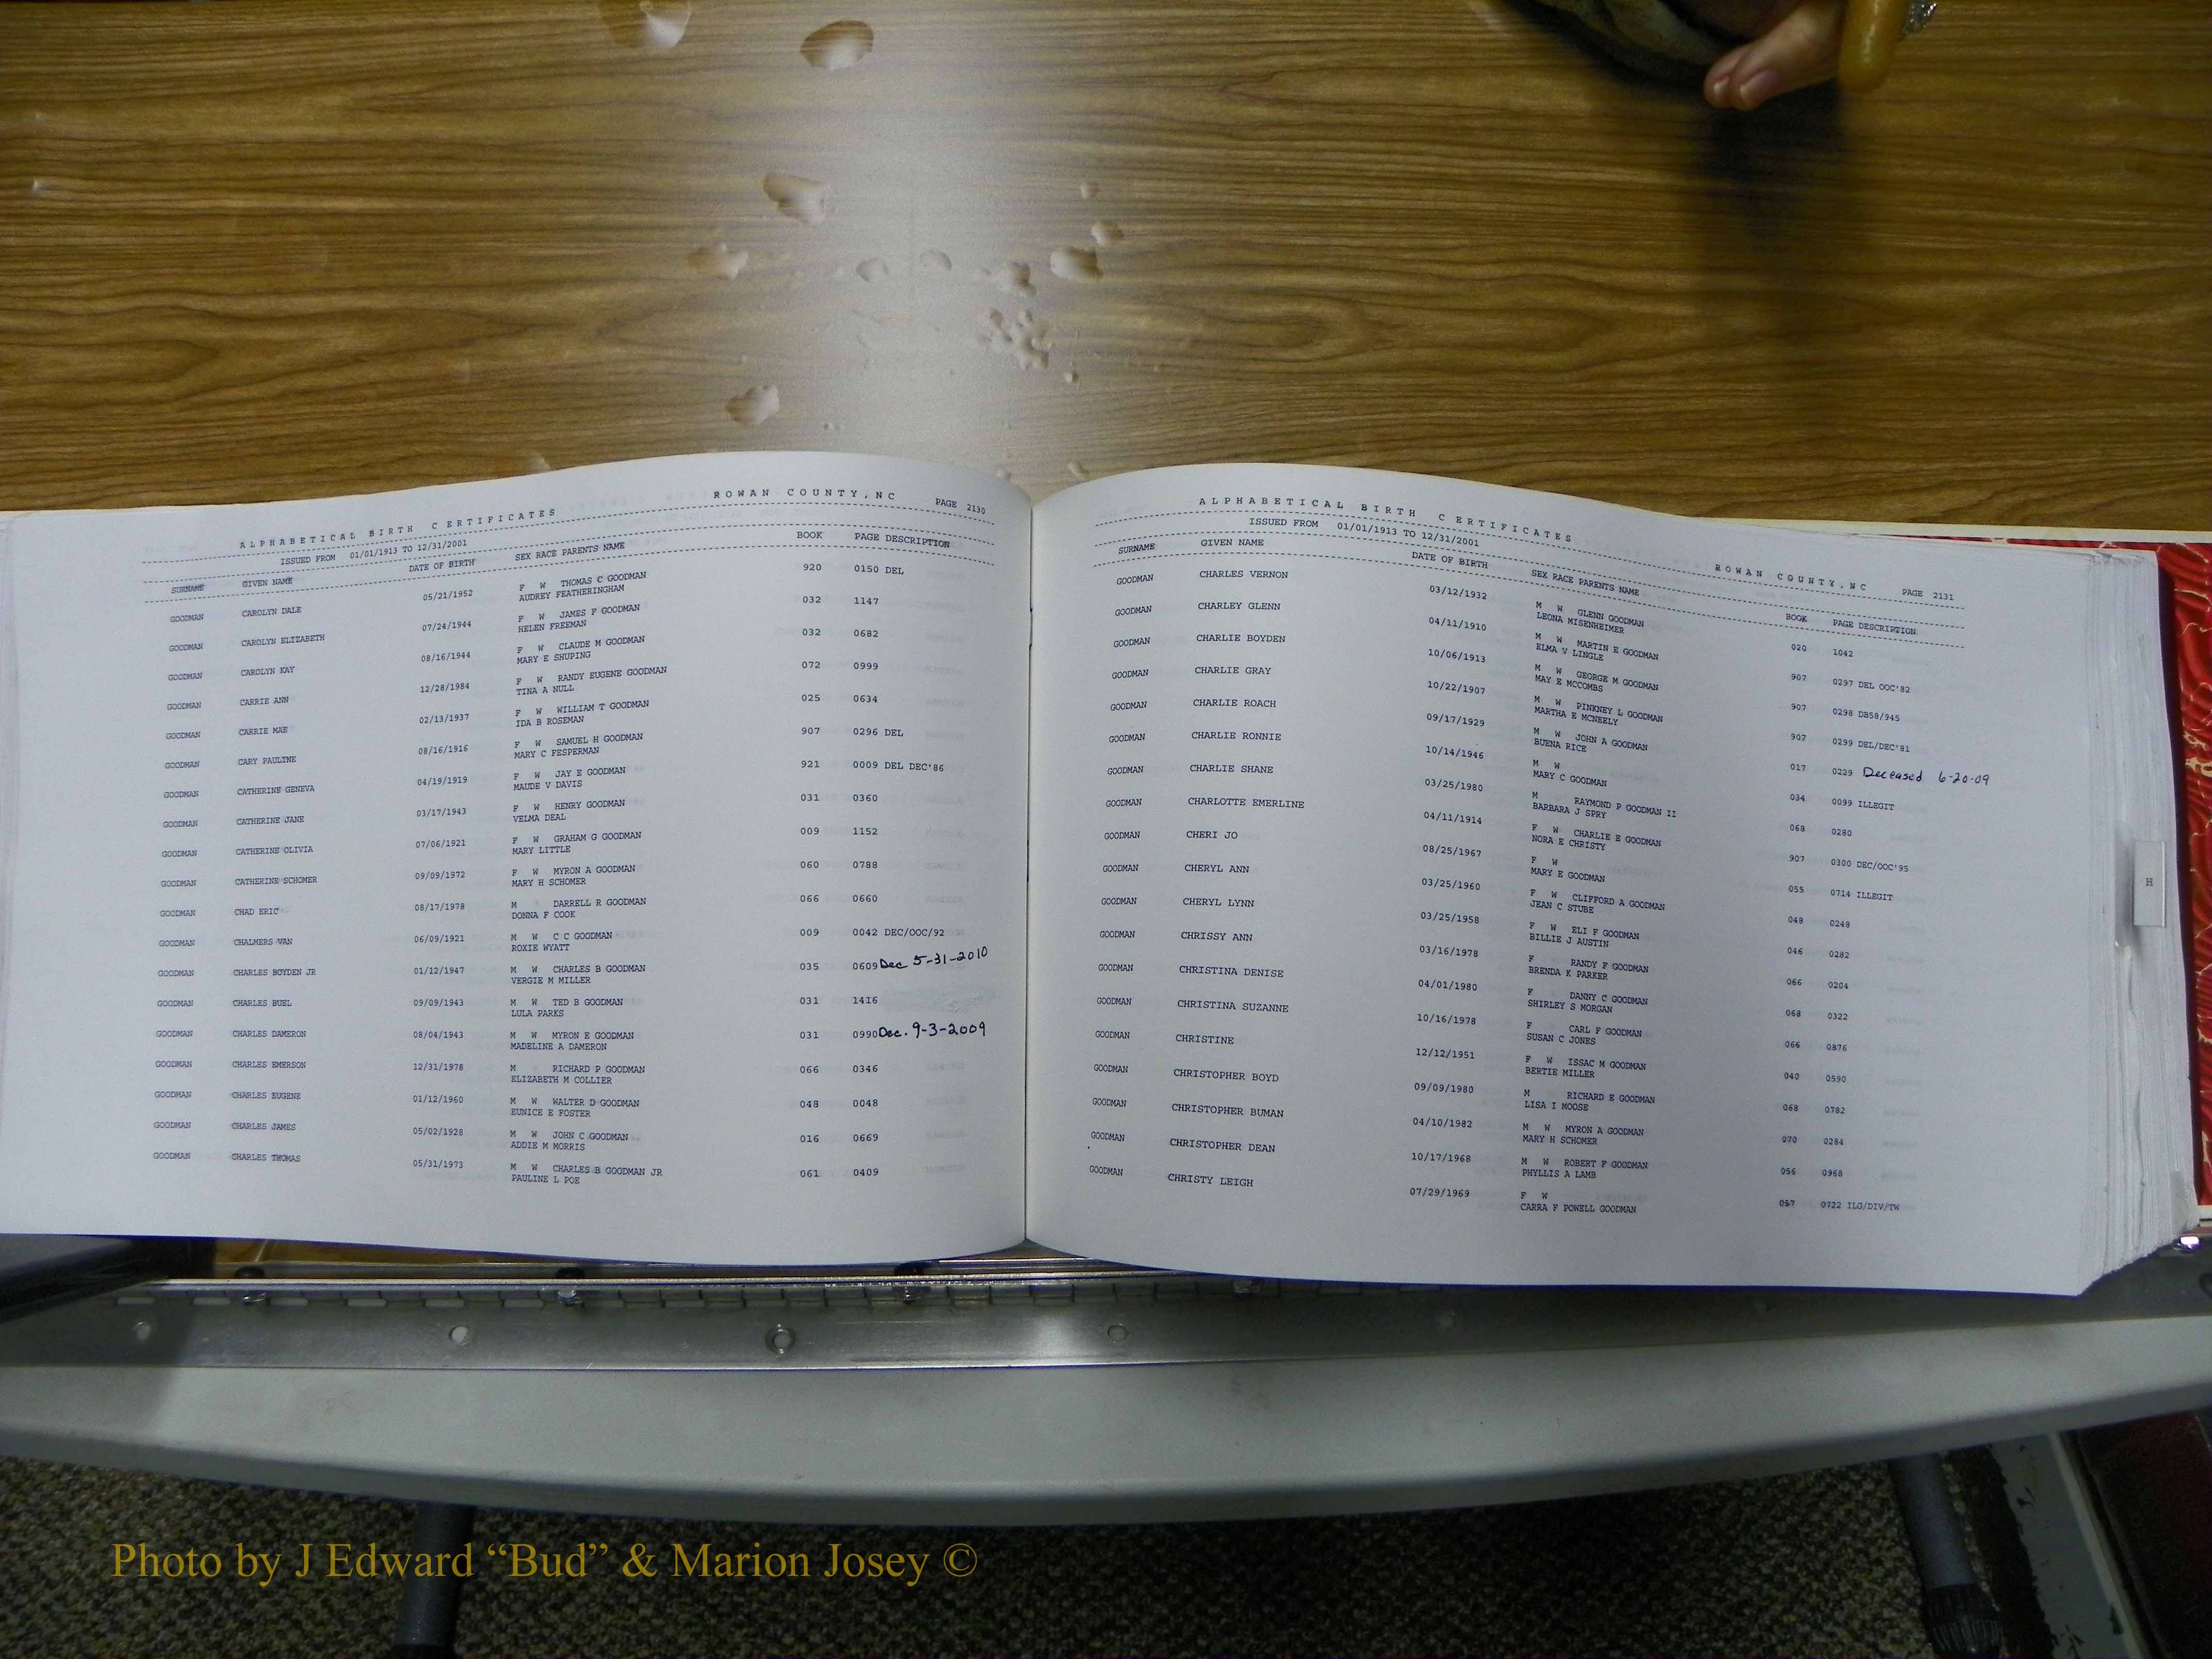 ALPHABETICAL BIRTH C ERTIFICATES ROWAN COUNTY,NC PAGE 2130
ISSUED FROM 01/01/1913 TO 12/31/2001
SURNAME GIVEN NAME DATE OF BIRTH SEX RACE PARENTS NAME BOOK PAGE DESCRIPTION
GOODMAN CAROLYN DALE 05/21/1952 F W THOMAS C GOODMAN 920 0150 DEL
AUDREY FEATHERINGHAM
GOODMAN CAROLYN ELIZABETH 07/24/1944 F W JAMES F GOODMAN 032 1147
HELEN FREEMAN
GOODMAN CAROLYN KAY 08/16/1944 F W CLAUDE M GOODMAN 032 0682
MARY E SHUPING
GOODMAN CARRIE ANN 12/28/1984 F W RANDY EUGENE GOODMAN 072 0999
TINA A NULL
GOODMAN CARRIE MAE 02/13/1937 F W WILLIAM T GOODMAN 025 0634
IDA B ROSEMAN
GOODMAN CARY PAULINE 08/16/1916 F W SAMUEL H GOODMAN 907 0296 DEL
MARY C FESPERMAN
GOODMAN CATHERINE GENEVA 04/19/1919 F W JAY E GOODMAN 921 0009 DEL DEC'86
MAUDE V DAVIS
GOODMAN CATHERINE JANE 03/17/1943 F W HENRY GOODMAN 031 0360
VELMA DEAL
GOODMAN CATHERINE OLIVIA 07/06/1921 F W GRAHAM G GOODMAN 009 1152
MARY LITTLE
GOODMAN CATHERINE SCHOMER 09/09/1972 F W MYRON A GOODMAN 060 0788
MARY H SCHOMER
GOODMAN CHAD ERIC 08/17/1978 M DARRELL R GOODMAN 066 0660
DONNA F COOK
GOODMAN CHALMERS VAN 06/09/1921 M W C C GOODMAN 009 0042 DEC/OOC/92
ROXIE WYATT
GOODMAN CHARLES BOYDEN JR 01/12/1947 M W CHARLES B GOODMAN 035 0609 Dec 5-31-2010
VERGIE M MILLER
GOODMAN CHARLES BUEL 09/09/1943 M W TED B GOODMAN 031 1416
LULA PARKS
GOODMAN CHARLES DAMERON 08/04/1943 M W MYRON E GOODMAN 031 0990 Dec. 9-3-2009
MADELINE A DAMERON
GOODMAN CHARLES EMERSON 12/31/1978 M RICHARD P GOODMAN 066 0346
ELIZABETH M COLLIER
GOODMAN CHARLES EUGENE 01/12/1960 M W WALTER D GOODMAN 048 0048
EUNICE E FOSTER
GOODMAN CHARLES JAMES 05/02/1928 M W JOHN C GOODMAN 016 0669
ADDIE M MORRIS
GOODMAN CHARLES THOMAS 05/31/1973 M W CHARLES B GOODMAN JR 061 0409
PAULINE L POE
ALPHABETICAL BIRTH C ERTIFICATES ROWAN COUNTY,NC PAGE 2131
ISSUED FROM 01/01/1913 TO 12/31/2001
SURNAME GIVEN NAME DATE OF BIRTH SEX RACE PARENTS NAME BOOK PAGE DESCRIPTION
GOODMAN CHARLES VERNON 03/12/1932 M W GLENN GOODMAN 020 1042
LEONA MISENHEIMER
GOODMAN CHARLEY GLENN 04/11/1910 M W MARTIN E GOODMAN 907 0297 DEL OOC'82
ELMA V LINGLE
GOODMAN CHARLIE BOYDEN 10/06/1913 M W GEORGE M GOODMAN 907 0298 DB58/945
MAY E MCCOMBS
GOODMAN CHARLIE GRAY 10/22/1907 M W PINKNEY L GOODMAN 907 0299 DEL/DEC'81
MARTHA E MCNEELY
GOODMAN CHARLIE ROACH 09/17/1929 M W JOHN A GOODMAN 017 0229 Deceased 6-20-09
BUENA RICE
GOODMAN CHARLIE RONNIE 10/14/1946 M W 034 0099 ILLEGIT
MARY C GOODMAN
GOODMAN CHARLIE SHANE 03/25/1980 M RAYMOND P GOODMAN II 068 0280
BARBARA J SPRY
GOODMAN CHARLOTTE EMERLINE 04/11/1914 F W CHARLIE E GOODMAN 907 0300 DEC/OOC'95
NORA E CHRISTY
GOODMAN CHERI JO 08/25/1967 F W 055 0714 ILLEGIT
MARY E GOODMAN
GOODMAN CHERYL ANN 03/25/1960 F W CLIFFORD A GOODMAN 048 0248
JEAN C STUBE
GOODMAN CHERYL LYNN 03/25/1958 F W ELI F GOODMAN 046 0282
BILLIE J AUSTIN
GOODMAN CHRISSY ANN 03/16/1978 F RANDY F GOODMAN 066 0204
BRENDA K PARKER
GOODMAN CHRISTINA DENISE 04/01/1980 F DANNY C GOODMAN 068 0322
SHIRLEY S MORGAN
GOODMAN CHRISTINA SUZANNE 10/16/1978 F CARL F GOODMAN 066 0876
SUSAN C JONES
GOODMAN CHRISTINE 12/12/1951 F W ISSAC M GOODMAN 040 0590
BERTIE MILLER
GOODMAN CHRISTOPHER BOYD 09/09/1980 M RICHARD E GOODMAN 068 0782
LISA I MOOSE
GOODMAN CHRISTOPHER BUMAN 04/10/1982 M W MYRON A GOODMAN 070 0284
MARY H SCHOMER
GOODMAN CHRISTOPHER DEAN 10/17/1968 M W ROBERT F GOODMAN 056 0968
PHYLLIS A LAMB
GOODMAN CHRISTY LEIGH 07/29/1969 F W 057 0722 ILG/DIV/TW
CARRA F POWELL GOODMAN
H
Photo by J Edward “Bud” & Marion Josey ©